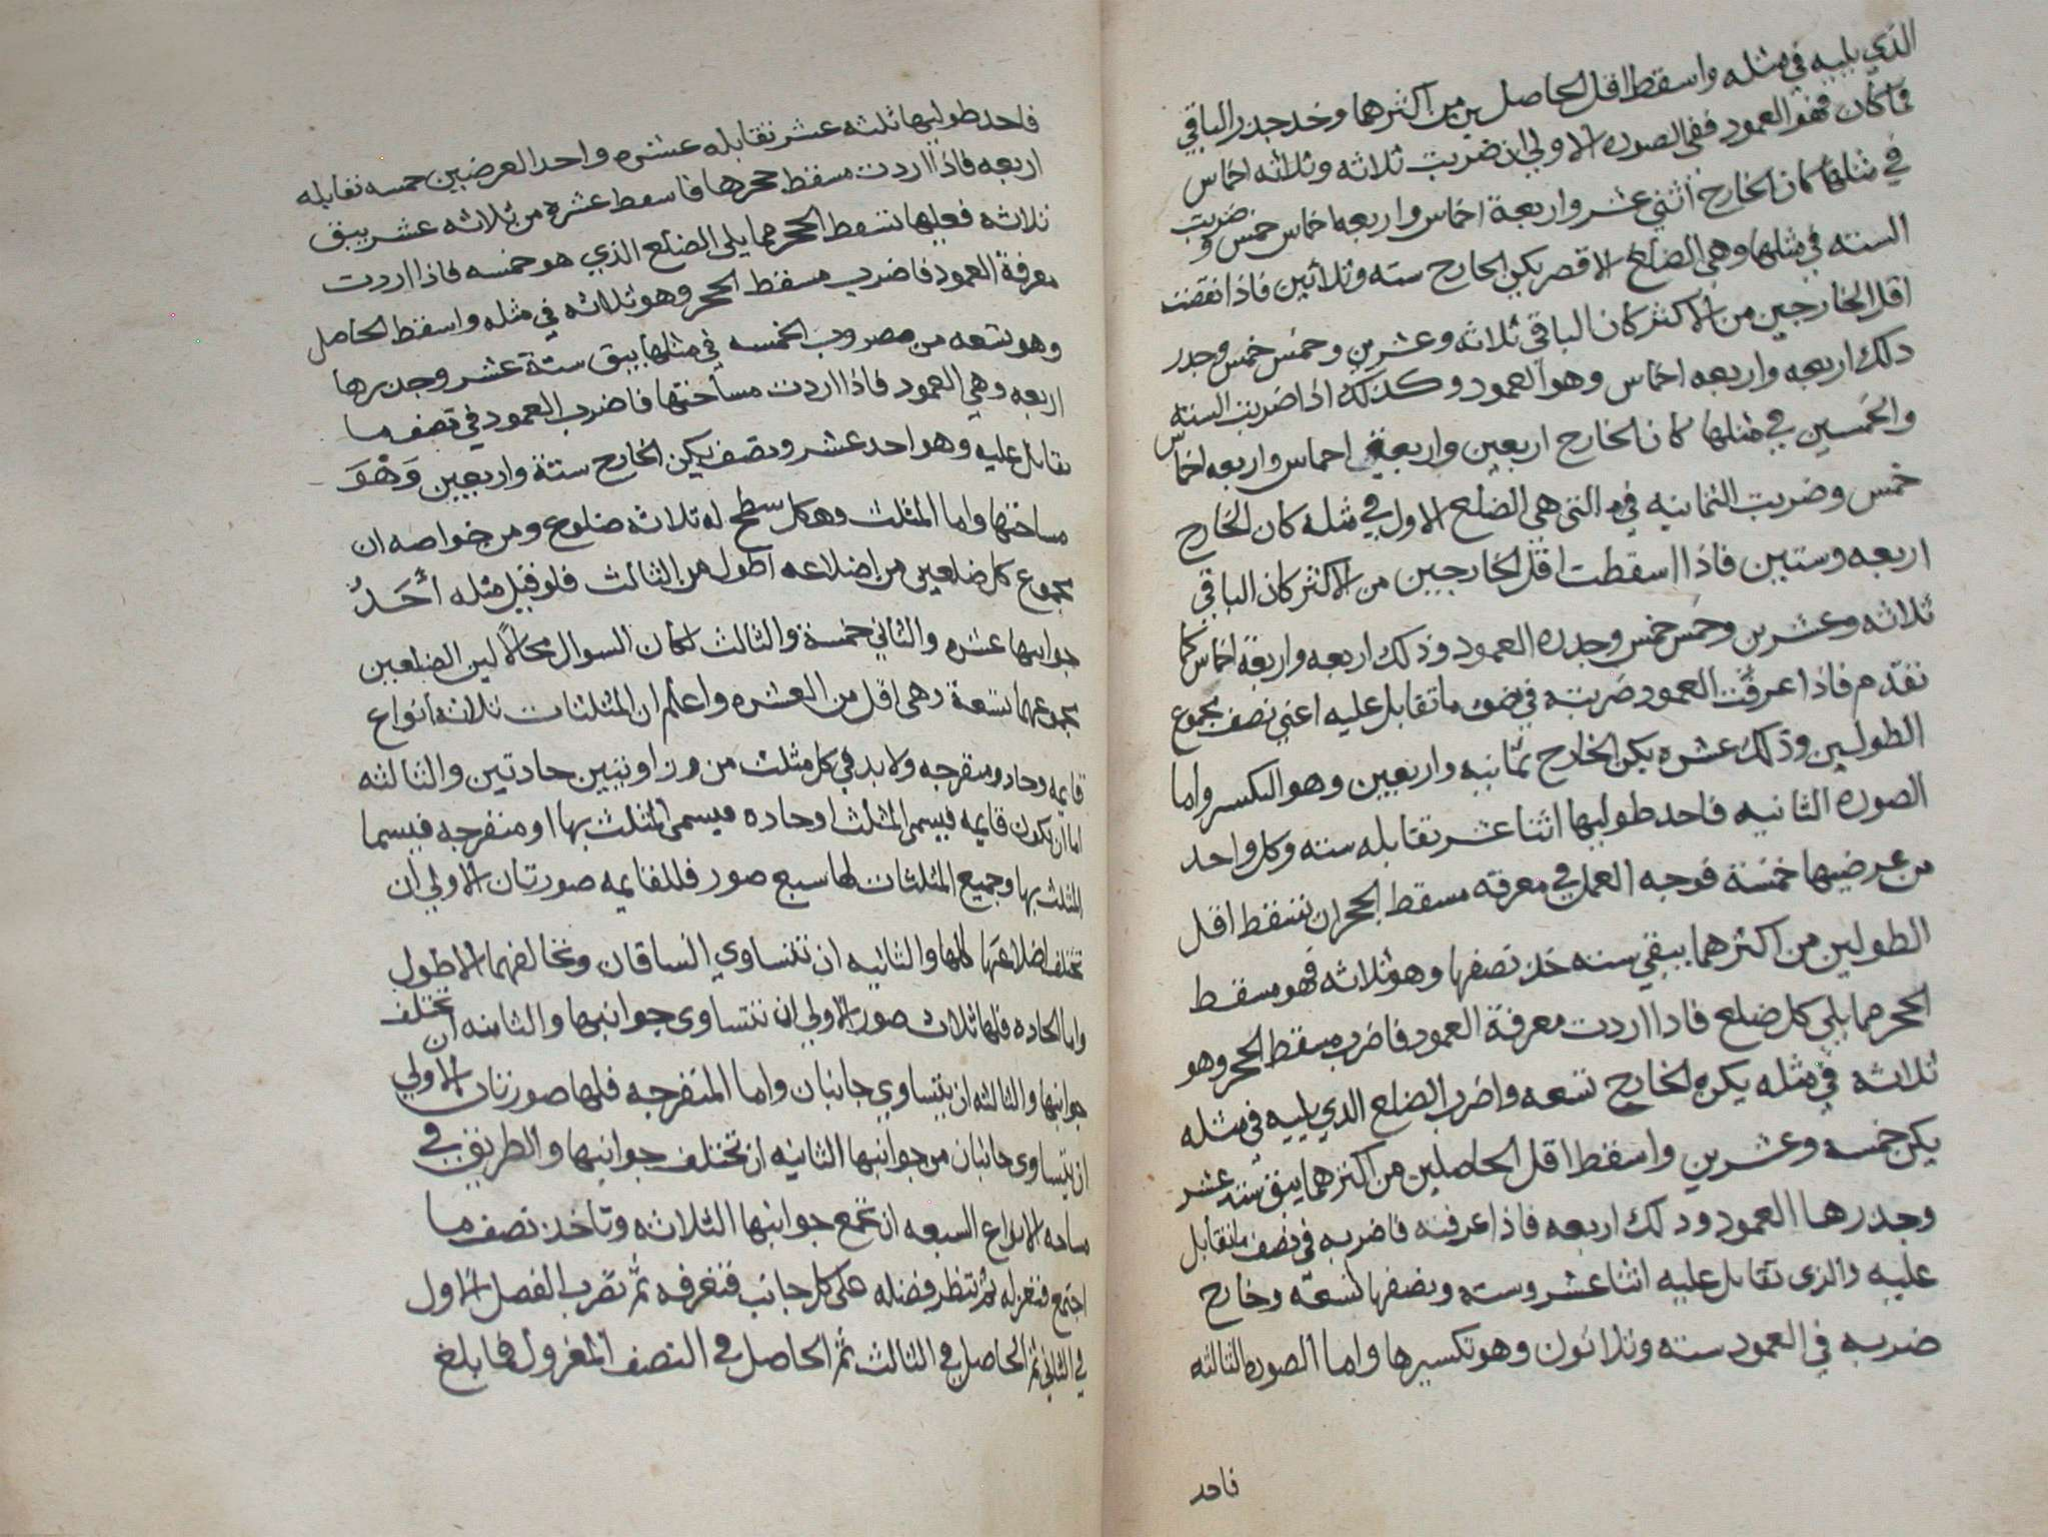 الذي يليه في مثله واسقط اقل الحاصلين من اكثرهما وخد جدر الباقي
فما كان فهو العمود ففي الصوره الاولي ان ضربت ثلاثه وثلاثه اخماس
في مثلها كان الخارج اثني عشر واربعة اخماس واربعه اخماس خمس وضربت
السته في مثلها وهي الضلع الاقصر يكن الخارج سته وثلاثين فاذا نقصت
اقل الخارجين من الاكثر كان الباقي ثلاثه وعشرين وخمس خمس وجدر
دلك اربعه واربعه اخماس وهو العمود وكذلك اذا ضربت السته
والخمسين في مثلها كان الخارج اربعين واربعة اخماس واربعه اخماس
خمس وضربت الثمانيه في التي هي الضلع الاول في مثله كان الخارج
اربعه وستين فاذا اسقطت اقل الخارجين من الاكثر كان الباقي
ثلاثه وعشرين وخمس خمس وجدره العمود وذلك اربعه واربعة اخماس كما
تقدم فاذا عرفت العمود ضربته في نصف ما تقابل عليه اعني نصف مجموع
الطولين وذلك عشره يكن الخارج ثمانيه واربعين وهو التكسير واما
الصوره الثانيه فاحد طوليها اثنا عشر تقابله سته وكل واحد
من عرضيها خمسة فوجه العمل في معرفه مسقط الحجر ان تسقط اقل
الطولين من اكثرهما يبقي سته خذ نصفها وهو ثلاثه فهو مسقط
الحجر مما يلي كل ضلع فاذا اردت معرفة العمود فاضرب مسقط الحجر وهو
ثلاثه في مثله يكن الخارج تسعه واضرب الضلع الدي يليه في مثله
يكن خمسه وعشرين واسقط اقل الحاصلين من اكثرهما يبق سته عشر
وجدرها العمود ودلك اربعه فاذا عرفته فاضربه في نصف ما تقابل
عليه والذي تقابل عليه اثنا عشر وسته ونصفها تسعه وخارج
ضربه في العمود سته وثلاثون وهو تكسيرها واما الصوره الثالثه
فاحد
فاحد طوليها ثلثه عشر تقابله عشره واحد العرضين خمسه تقابله
اربعه فاذا اردت مسقط حجرها فاسقط عشره من ثلاثه عشر يبق
ثلاثه فعليها تسقط الحجر مما يلي الضلع الذي هو خمسه فاذا اردت
معرفة العمود فاضرب مسقط الحجر وهو ثلاثه في مثله واسقط الحاصل
وهو تسعه من مضروب الخمسه في مثلها يبق ستة عشر وجدرها
اربعه وهي العمود فاذا اردت مساحتها فاضرب العمود في نصف ما
تقابل عليه وهو احد عشر ونصف يكن الخارج ستة واربعين وهو
مساحتها واما المثلث وهو كل سطح له ثلاثه ضلوع ومن خواصه ان
مجموع كل ضلعين من اضلاعه اطول من الثالث فلو قيل مثله أحد
جوانبها عشره والثاني خمسة والثالث لكان السوال محالا لين الضلعين
مجموعهما تسعة وهي اقل من العشره واعلم ان المثلثات ثلاثه أنواع
قايمه وحاده ومنفرجه ولابد في كل مثلث من زاويتين حادتين والثالثه
اما ان تكون قايمه فيسمى المثلث اوحاده فيسمى المثلث بها او منفرجه فيسما
المثلث بها وجميع المثلثات لها سبع صور فللقايمه صورتان الاولي ان
تختلف اضلاعها كلها والثانيه ان تتساوي الساقان وتخالفهما الاطول
واما الحاده فلها ثلاث صور الاولي ان تتساوى جوانبها والثانيه ان تختلف
جوانبها والثالثه ان يتساوي جانبان واما المنفرجه فلها صورتان الاولي
ان يتساوى جانبان من جوانبها الثانيه ان تختلف جوانبها والطريق في
مساحه الانواع السبعه ان تجمع جوانبها الثلاثه وتاخذ نصف ما
اجتمع فتعزله ثم تنظر فضله على كل جانب فتعرفه ثم تضرب الفصل الاول
في الثاني ثم الحاصل في الثالث ثم الحاصل في النصف المعزول فما بلغ